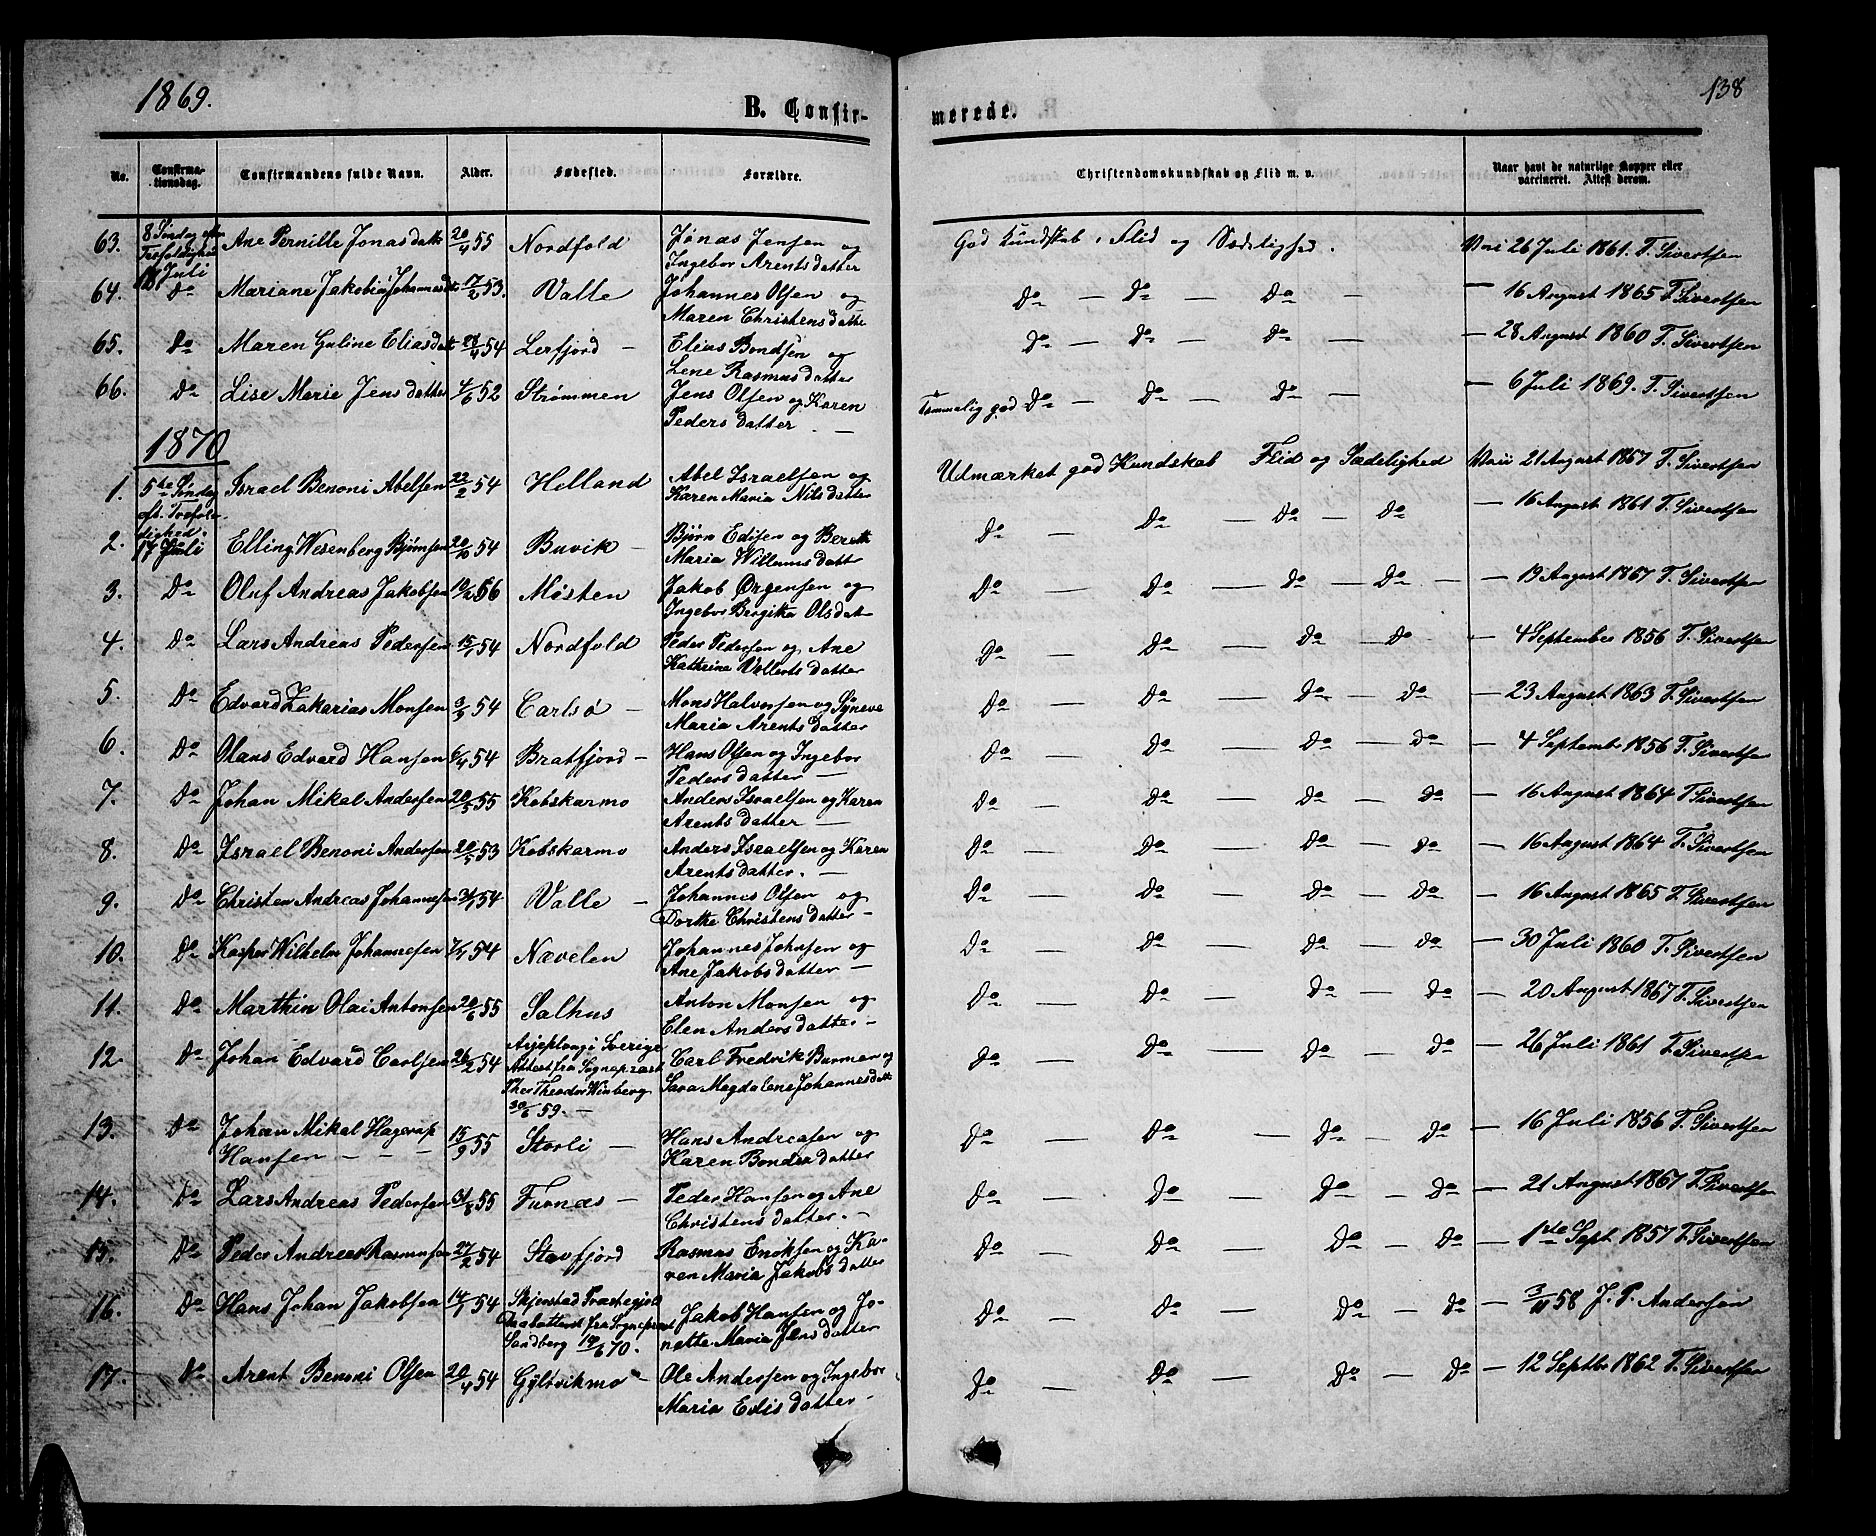 1869.
138
B. Confir-
merede.
No.
Confirma-
tionsdag.
Confirmandens fulde Navn.
Alder.
Fødested.
Forældre.
Christendomskundskab og Flid m. v.
Naar havt de naturlige Kopper eller
vaccineret. Attest derom.
63. 8 Søndag efter Trefoldighed 18 Juli Ane Pernille Jonasdatt 20/4 55 Nordfold Jonas Jensen og Ingebor Arentsdatter God Kundskab, Flid og Sædelighed. Vaci 26 Juli 1861. T. Sivertsen
64. Do Mariane Jakobia Johannesdtr 17/2 53. Valle Johannes Olsen og Maren Christensdatter Do — Do — Do — — 16 August 1865 T. Sivertsen
65. Do Maren Guline Eliasdatt 28/4 54 Lerfjord — Elias Bondsen og Lene Rasmusdatter Do — Do — Do — — 28 August 1860 T. Sivertsen
66. Do Lise Marie Jensdatter 4/6 52 Strømmen Jens Olsen og Karen Pedersdatter — Temmelig god Do — Do — Do — — 6 Juli 1869. T. Sivertsen
1870
1. 5te Søndag eft. Trefoldighed. 17 Juli Israel Benoni Abelsen 22/2 54 Helland Abel Israelsen og Karen Maria Nilsdatter Udmærket god Kundskab Flid og Sædelighed Vaci 21 August 1867 T. Sivertsen
2. Elling Wesenberg Bjørnsen 20/10 54 Buvik — Bjørn Edisen og Berett Maria Willumsdatt Do — Do — Do — Do — 16 August 1861 T. Sivertsen
3. Do Oluf Andreas Jakobsen 10/2 56 Møsten Jakob Ørgensen og Ingebor Birgitha Olsdat Do — Do — Do — Do — — 19 August 1867 T. Sivertsen
4. Do Lars Andreas Pedersen 15/1 54 Nordfold Peder Pedersen og Ane Kathrine Vallentsdatter Do — Do — Do — Do — 4 September 1856 T. Sivertsen
5. Do Edvard Zakarias Monsen 3/9 54 Carlsø — Mons Halvorsen og Syneva Maria Arentsdatter Do — Do — Do — Do — 23 August 1863 T. Sivertsen
6. Do Olaus Edvard Hansen 6/4 54 Bratfjord — Hans Olsen og Ingebor Pedersdatter — Do — Do — Do — Do — 4 Septembr 1856 T. Sivertsen
7. Do Johan Mikal Andersen 20/5 55 Kobskarmo Anders Israelsen og Karen Arentsdatter — Do — Do — Do — Do — 16 August 1864 T. Sivertsen
8. Do Israel Benoni Andersen 20/5 53 Kobskarmo Anders Israelsen og Karen Arentsdatter. — Do — Do — Do — Do — 16 August 1864 T. Sivertsen
9. Do Christen Andreas Johannesen 31/1 54 Valle — Johannes Olsen og Dorthe Christensdatter — Do — Do — Do — Do — 16 August 1865 T. Sivertsen
10. Do Kasper Wilhelm Johannesen 7/1 54 Nævelen Johannes Johnsen og Ane Jakobsdatter — Do — Do — Do — Do — 30 Juli 1860 T. Sivertsen
11. Do Marthin Olai Antonsen 20/6 55 Salhus Anton Monsen og Elen Andersdatter — Do — Do — Do — Do — 20 August 1867 T. Sivertsen
12. Do Johan Edvard Carlsen 26/2 54 Arjeplougi Sverige Attest fra Sogneprest Ther Theodor Winberg 30/6 59. — Carl Fredrik Burman og Sara Magdalene Johannesdatt Do — Do — Do — Do — 26 Juli 1861 T. Sivertsen
13. Do Johan Mikal Hagerup Hansen — — — 15/9 55 Storli — Hans Andreasen og Karen Bondesdatter Do — Do — Do — Do — 16 Juli 1856 T. Sivertsen
14. Do Lars Andreas Pedersen 31/8 55 Furnæs — Peder Hansen og Ane Christensdatter. — Do — Do — Do — Do — 21 August 1867 T. Sivertsen
15. Do Peder Andreas Rasmussen 27/2 54 Stavfjord Rasmus Enoksen og Karen Maria Jakobsdatter Do — Do — Do — Do — 1ste Sept 1857 T. Sivertsen
16. Do Hans Johan Jakobsen 14/1 54 Skjerstad Præstegjeld Daabattest fra Sogneprest Sandberg 19/6 70. Jakob Hansen og Jonette Maria Jensdatter Do — Do — Do — Do — 3/11 58 J. P. Andersen
17. Do Arent Benoni Olsen 20/4 54 Gyltvikmo — Ole Andersen og Ingebor Maria Edisdatter — Do — Do — Do — Do — 12 Septbr 1862 T. Sivertsen